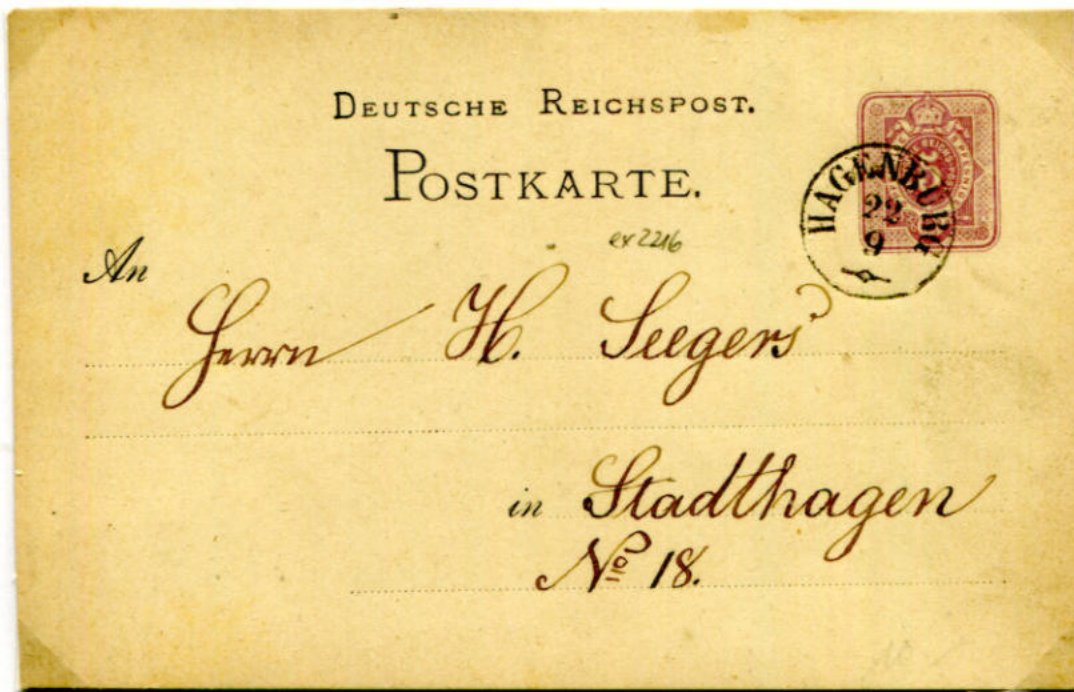 DEUTSCHE REICHSPOST.
POSTKARTE.
HAGENBURG
22
9
ex 2216
An
Herrn H. Seegers
in Stadthagen
No 18.